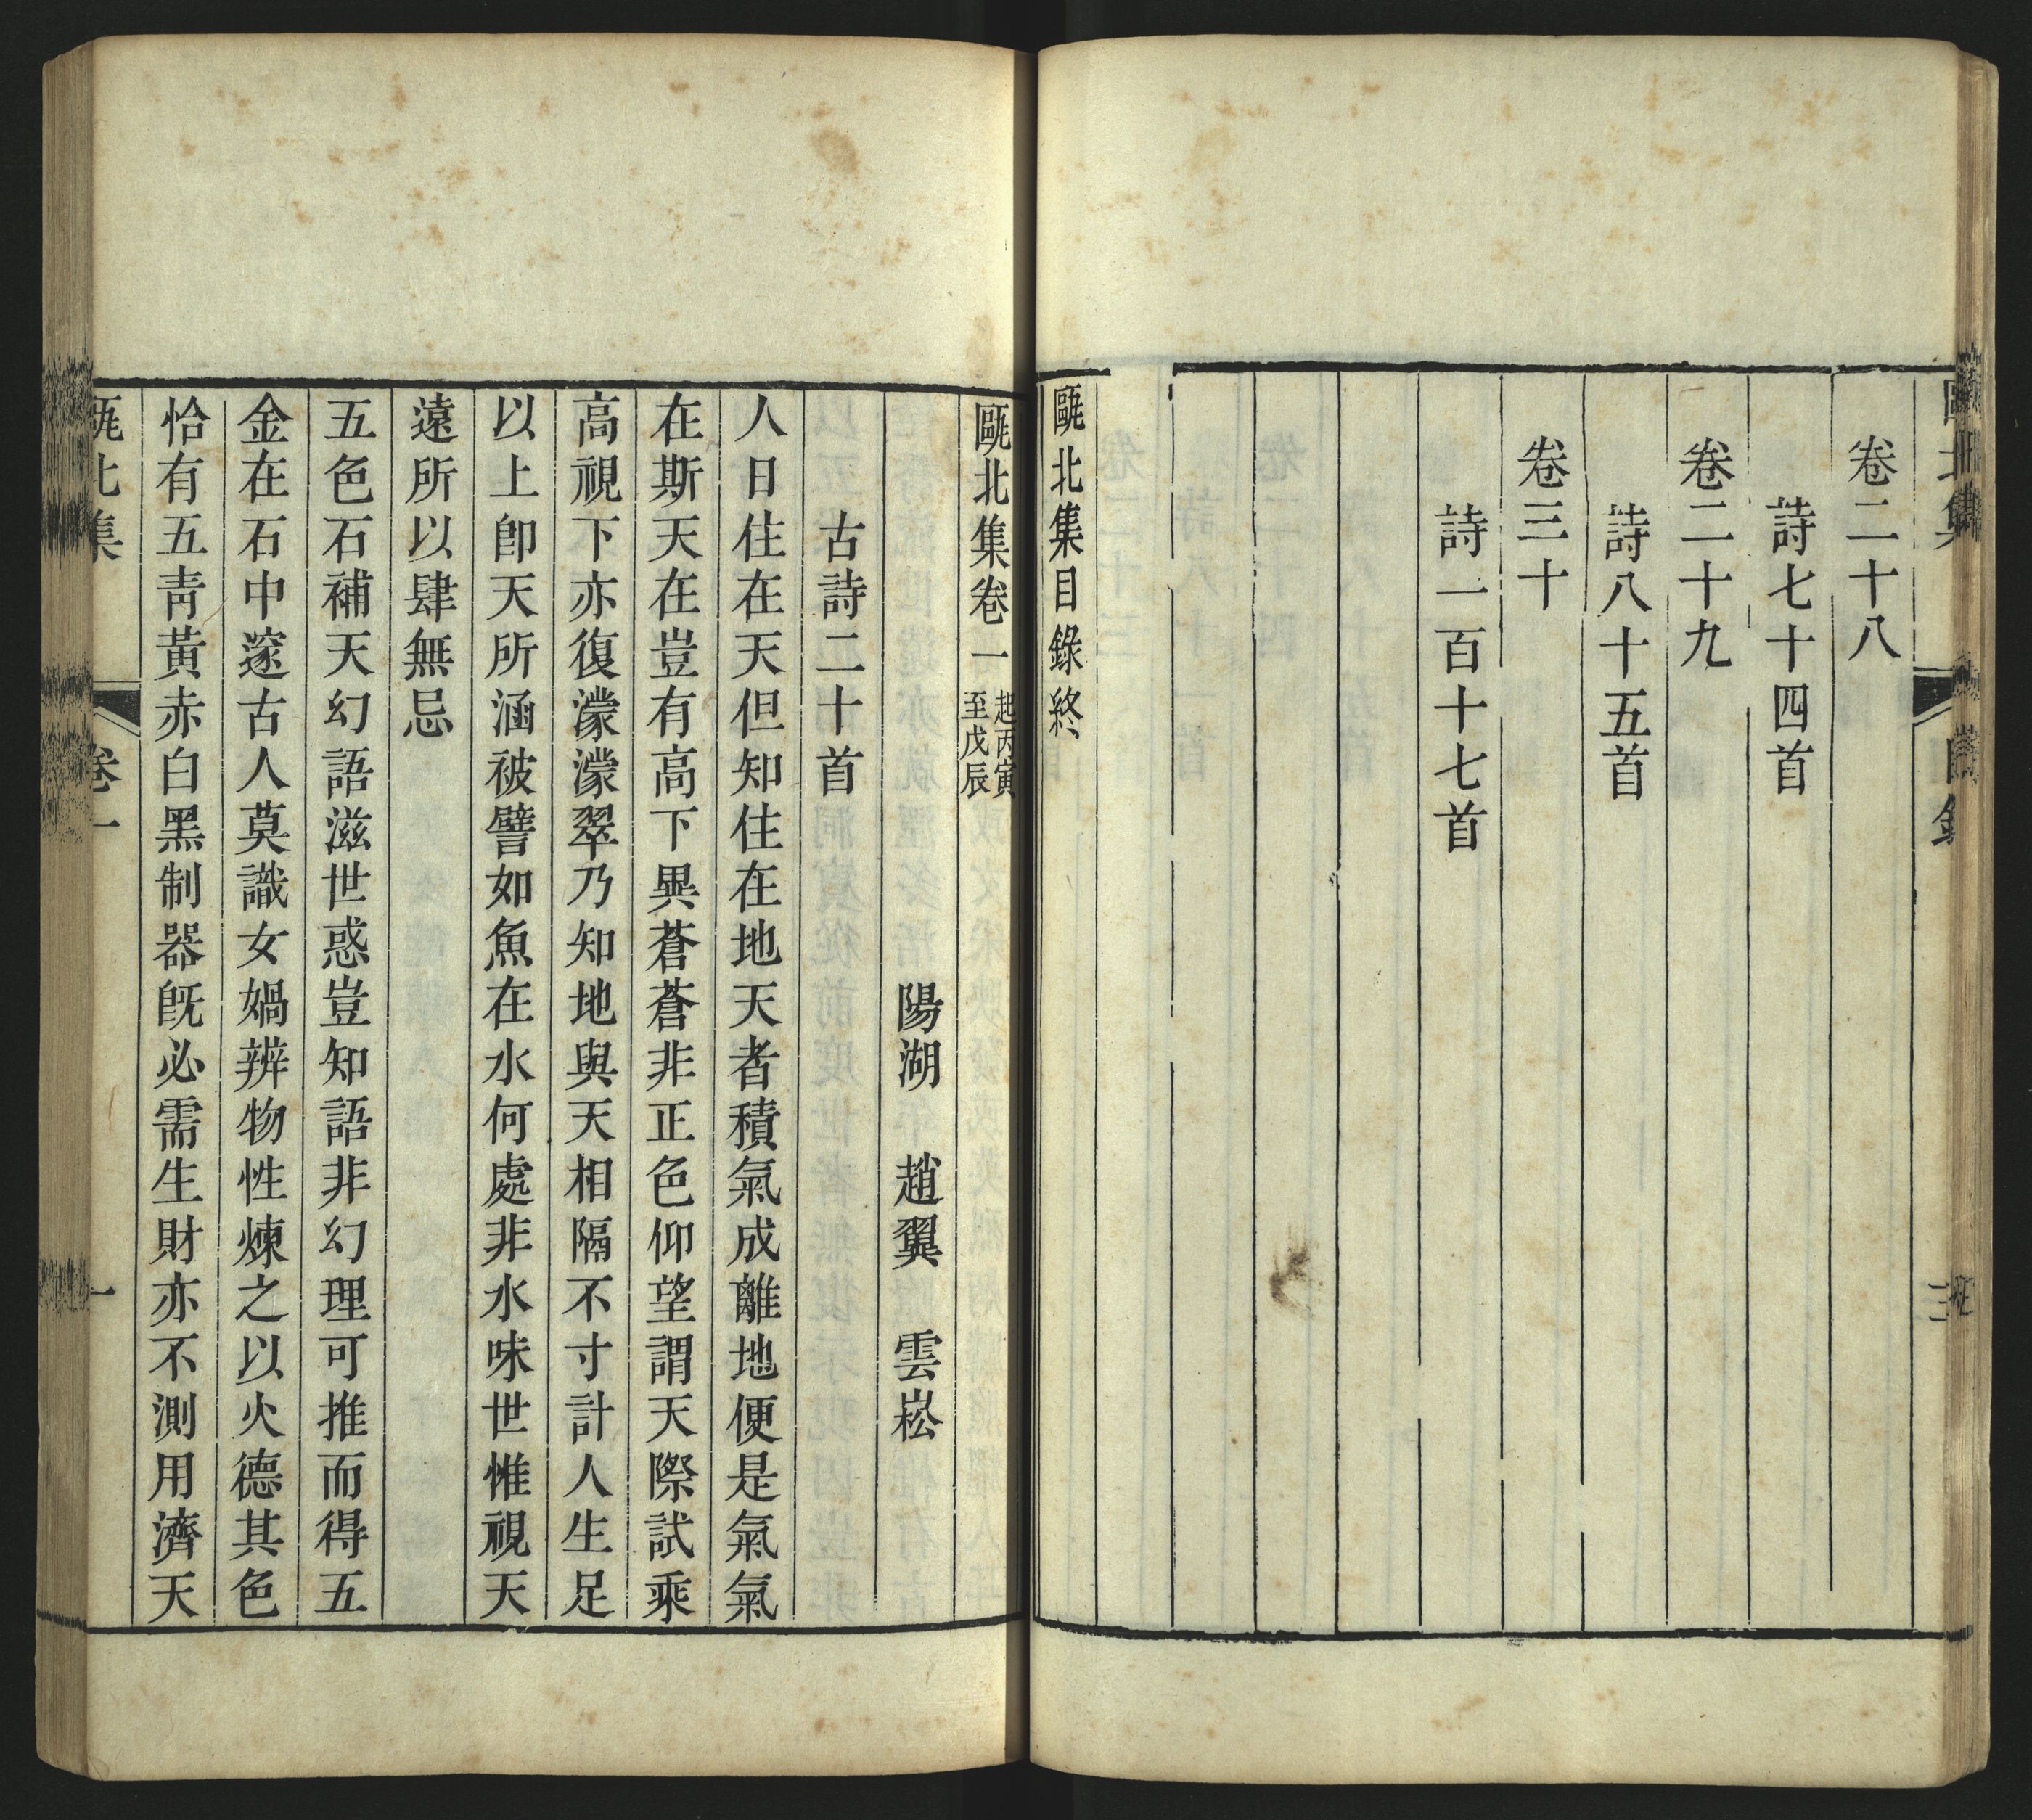 卷二十八
詩七十四首
卷二十九
詩八十五首
卷三十
詩一百十七首
甌北集目錄終
甌北集卷一 起丙寅
至戊辰
陽湖 趙翼 雲崧
古詩二十首
人日住在天但知住在地天者積氣成離地便是氣氣
在斯天在豈有高下異蒼蒼非正色仰望謂天際試乘
高視下亦復濛濛翠乃知地與天相隔不寸計人生足
以上卽天所涵被譬如魚在水何處非水味世惟視天
遠所以肆無忌
五色石補天幻語滋世惑豈知語非幻理可推而得五
金在石中邃古人莫識女媧辨物性煉之以火德其色
恰有五靑黃赤白黑制器旣必需生財亦不測用濟天
甌北集 卷一 一